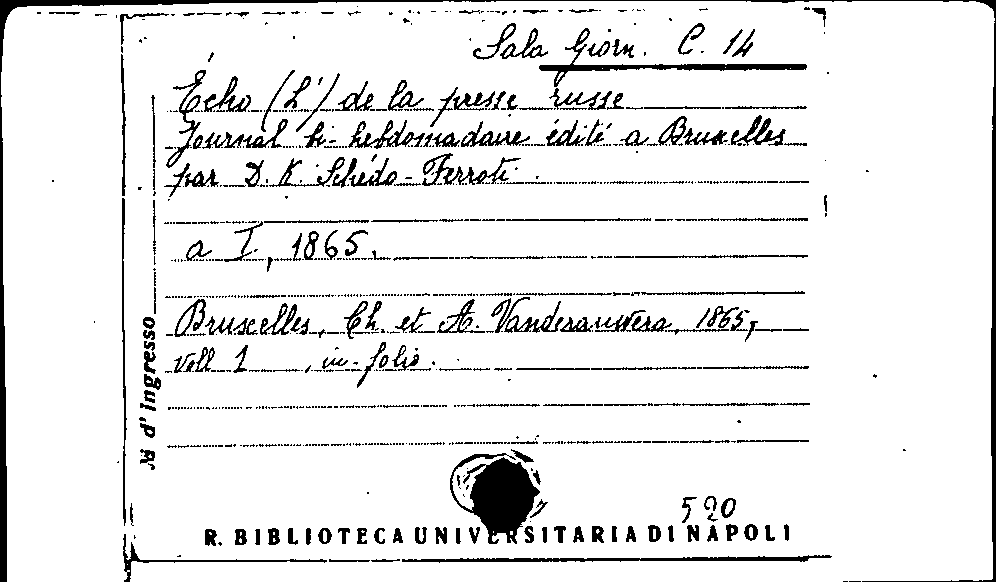 Sala Giorn. C. 14
Écho (L') de la presse russe
Journal bi-hebdomadaire édité a Bruxelles
par D. K. Schédo-Ferroti.
a I, 1865.
Bruxelles, Ch. et A. Vanderauwera, 1865,
Voll 1 , in-folio.
N d'Ingresso
520
R. BIBLIOTECA UNIVERSITARIA DI NAPOLI